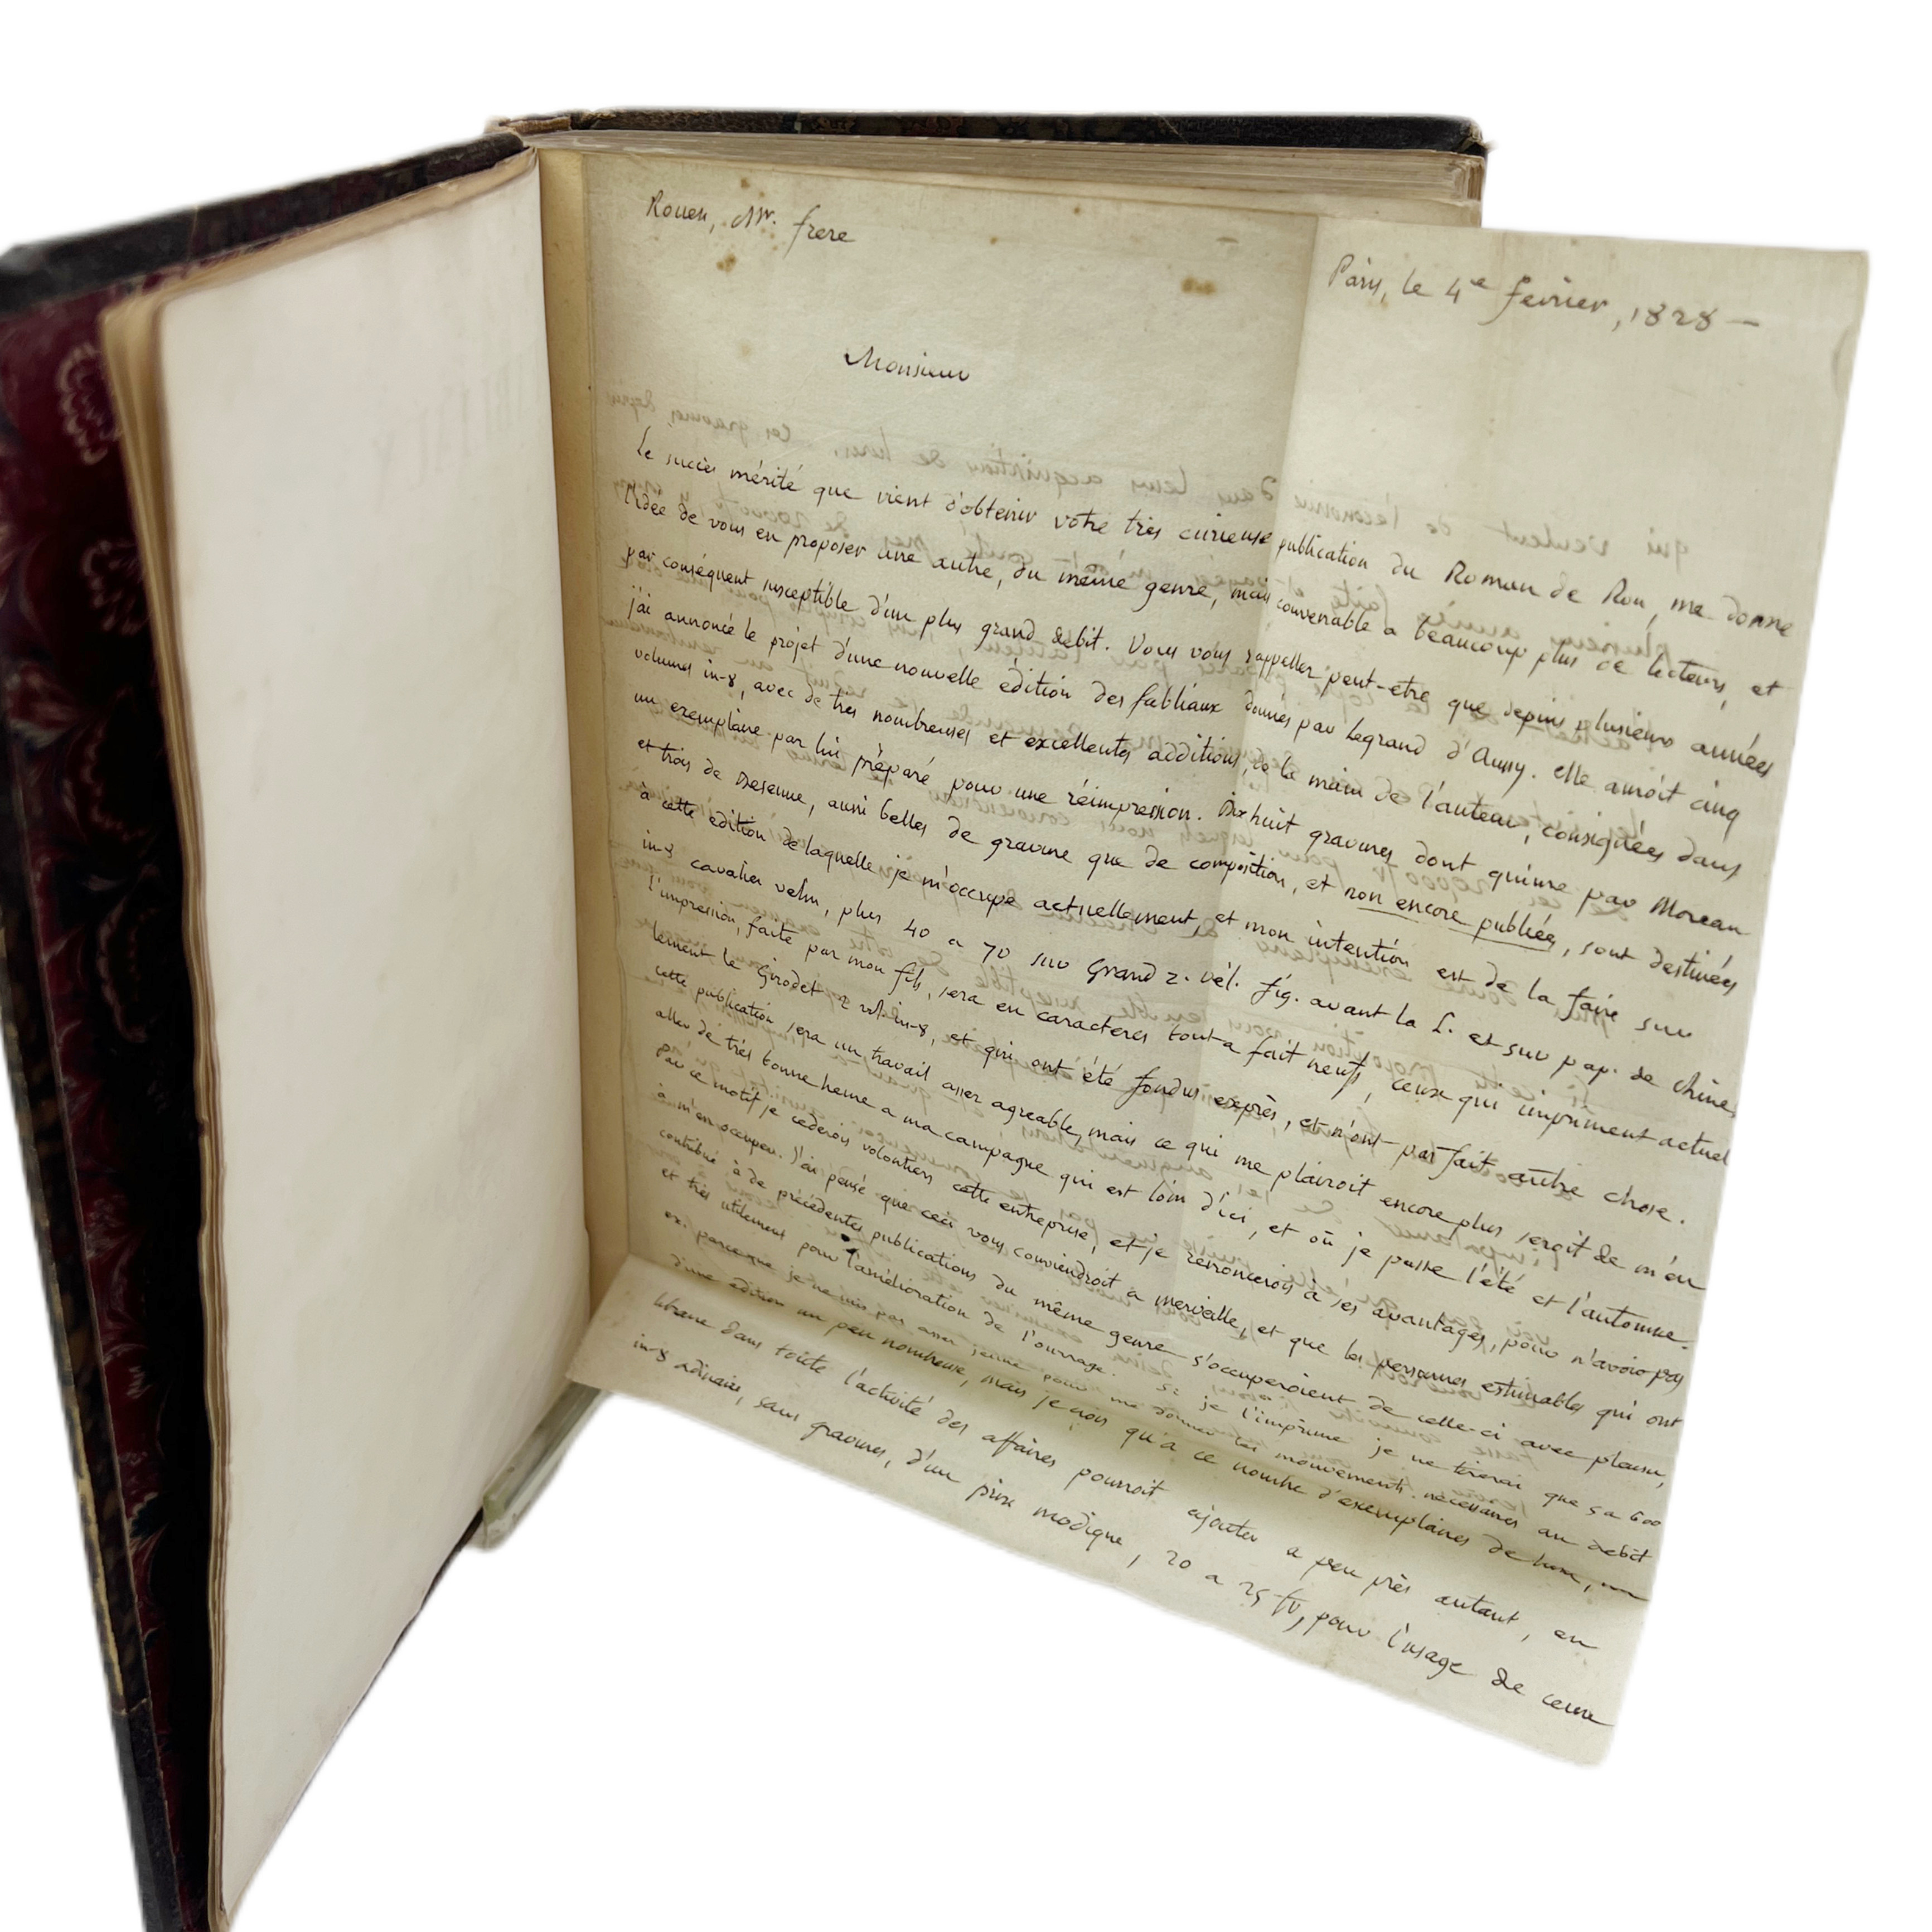 Rouen, Mr. frere
Paris, le 4e fevrier, 1828 —
Monsieur
Le succès mérité que vient d'obtenir votre très curieuse publication du Roman de Rou, me donne
l'idée de vous en proposer une autre, du même genre, mais convenable a beaucoup plus de lecteurs, et
par conséquent susceptible d'un plus grand debit. Vous vous rappellez peut-etre que depuis plusieurs années
j'ai annoncé le projet d'une nouvelle édition des fabliaux donnés par Legrand d'Aussy. elle auroit cinq
volumes in-8, avec de tres nombreuses et excellentes additions, de la main de l'auteur, consignées dans
un exemplaire par lui préparé pour une réimpression. Dix huit gravures dont quinze par Moreau
et trois de Desenne, aussi belles de gravure que de composition, et non encore publiées, sont destinées
à cette edition de laquelle je m'occupe actuellement, et mon intention est de la faire sur
in-8 cavalier velin, plus 40 a 70 sur Grand r. vél. fig. avant la L. et sur pap. de Chine,
l'impression, faite par mon fils, sera en caracteres tout a fait neufs, ceux qui impriment actuel
lement le Girodet 2 vol. in-8, et qui ont été fondus exprès, et n'ont pas fait autre chose.
cette publication sera un travail assez agreable, mais ce qui me plairoit encore plus seroit de m'en
aller de très bonne heure a ma campagne qui est loin d'ici, et où je passe l'été et l'automne.
Par ce motif je cederois volontiers cette entreprise, et je renoncerois à ses avantages, pour n'avoir pas
à m'en occuper. J'ai pensé que ceci vous conviendroit a merveille, et que les personnes estimables qui ont
contribué à de précédentes publications du même genre s'occuperoient de celle-ci avec plaisir,
et très utilement pour l'amélioration de l'ouvrage. Si je l'imprime je ne tirerai que 5 a 600
ex. parceque je ne suis pas assez jeune pour me donner les mouvements nécessaires au debit
d'une edition un peu nombreuse, mais je crois qu'a ce nombre d'exemplaires de luxe, un
libraire dans toute l'activité des affaires pourroit ajouter a peu près autant, en
in-8 ordinaire, sans gravures, d'un prix modique, 20 a 25 fr, pour l'usage de ceux